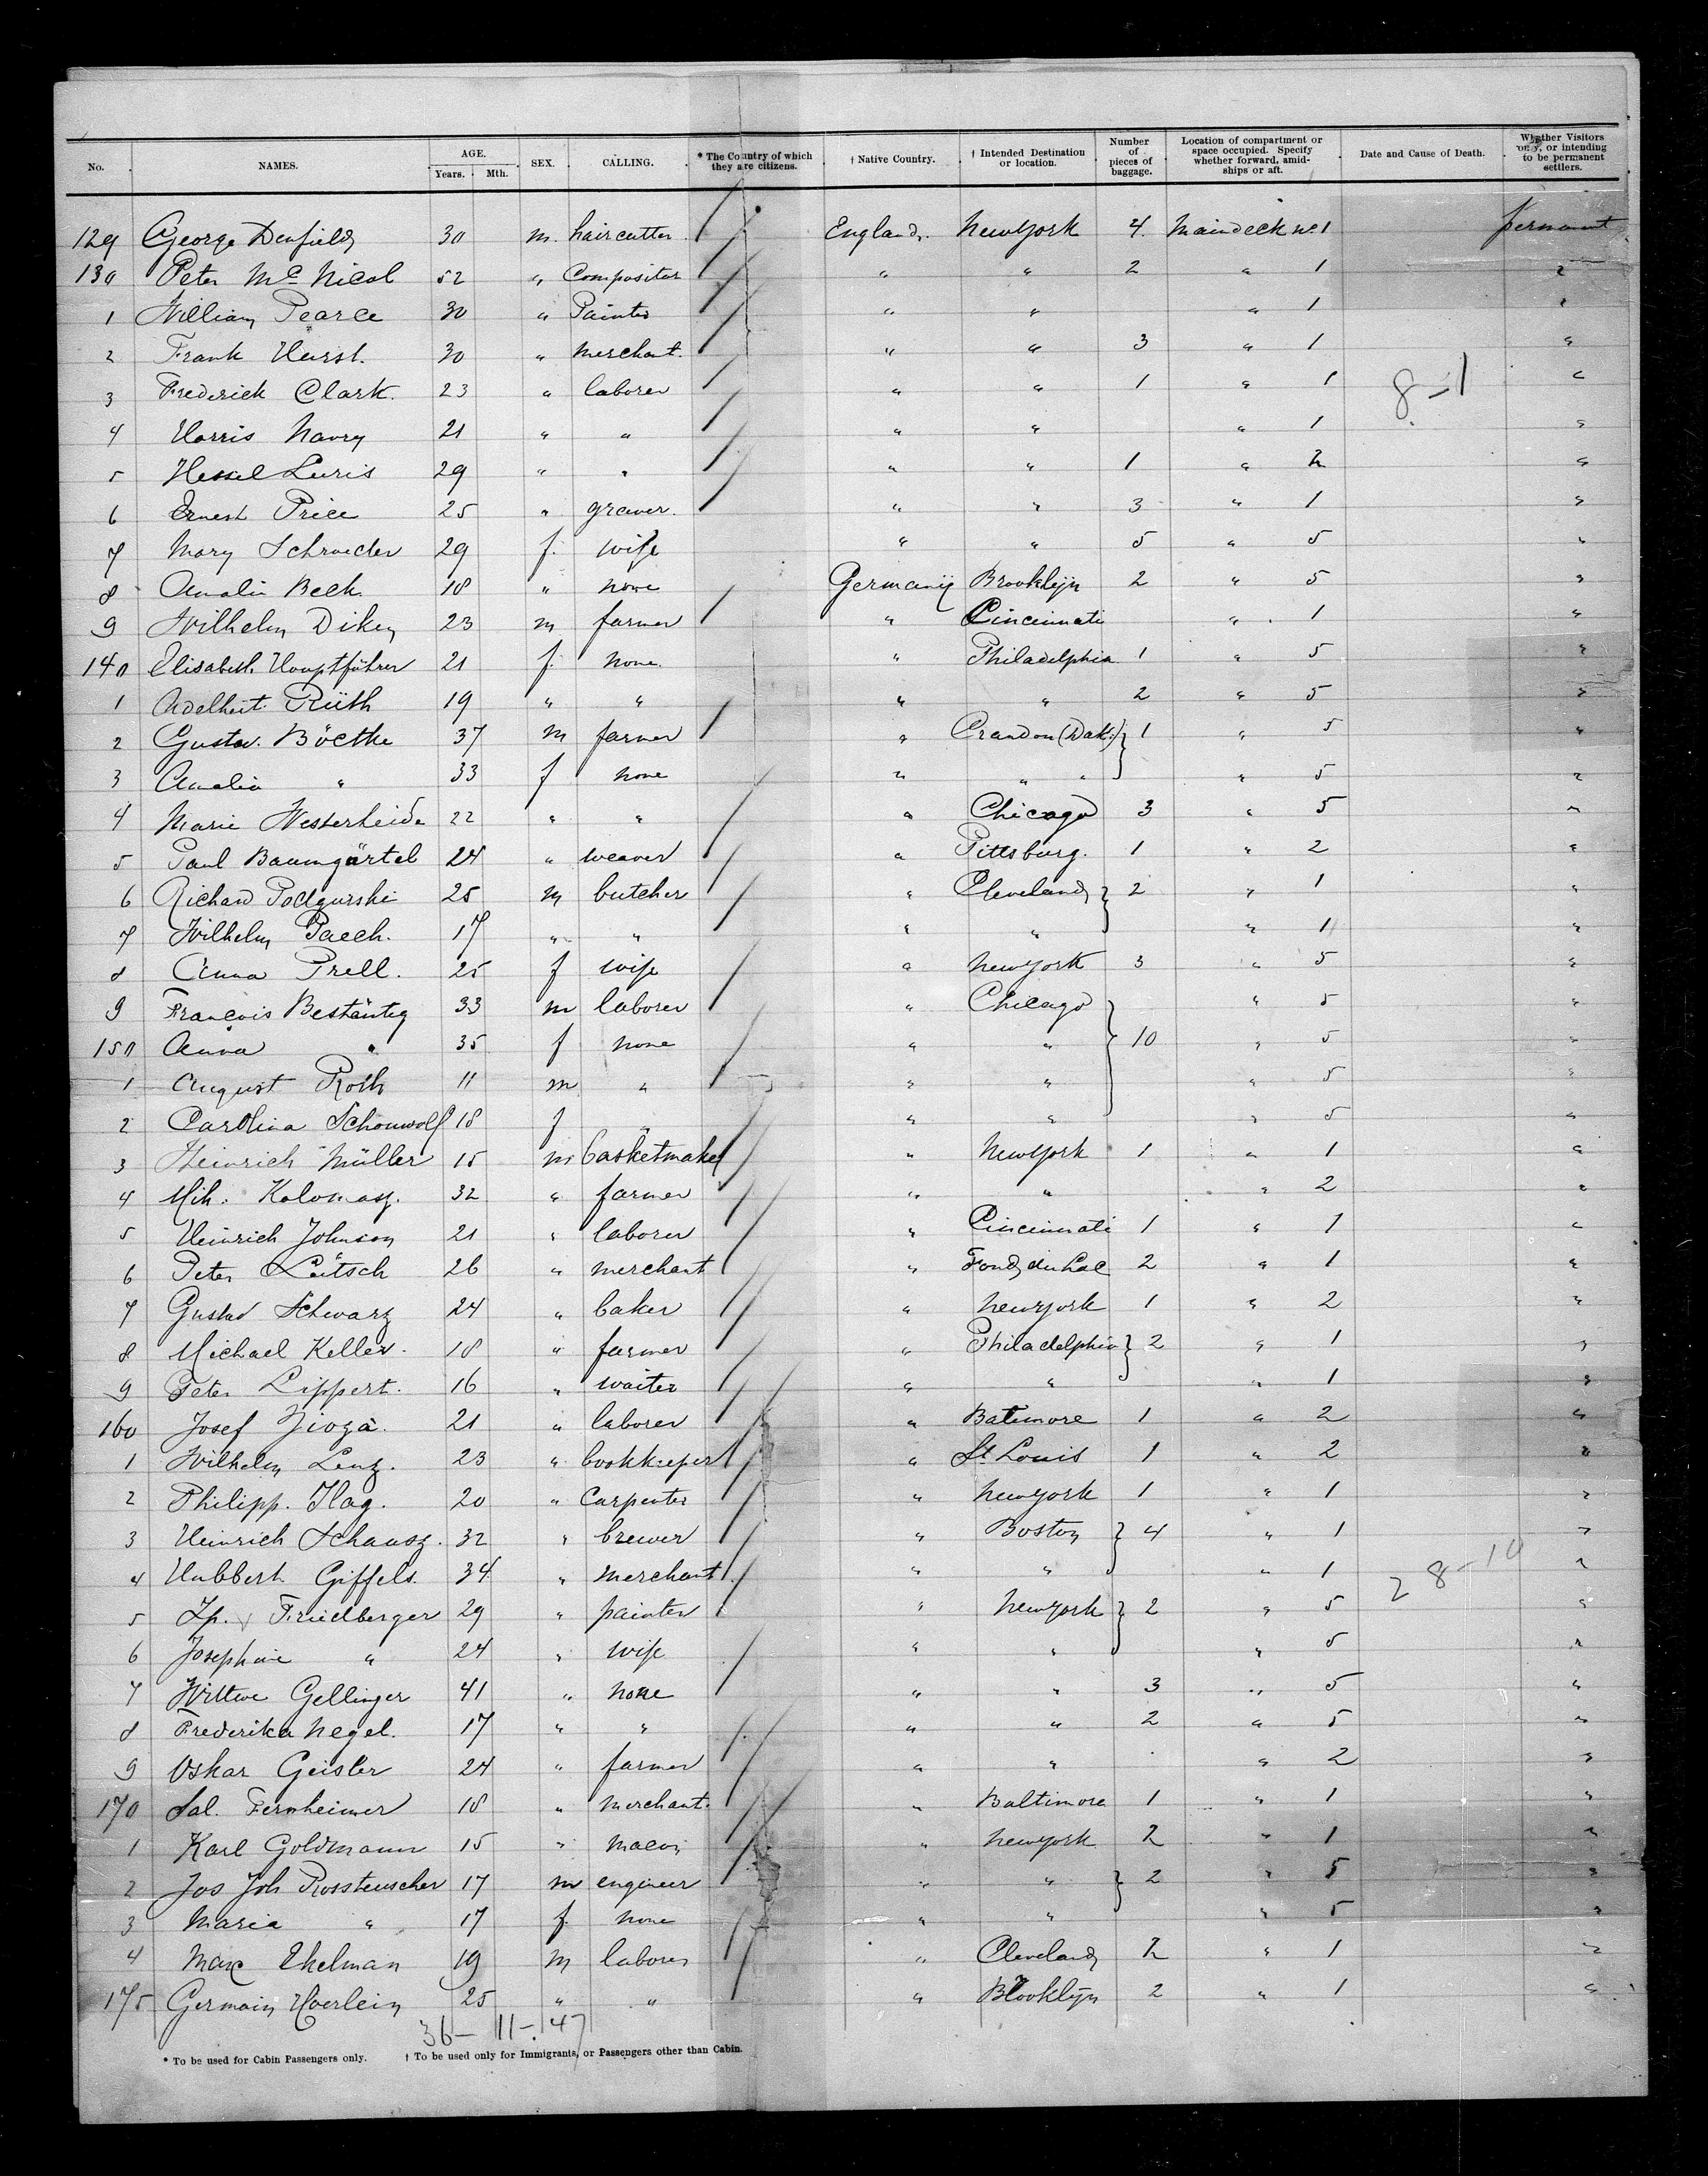 No. NAMES. AGE. Years. Mth. SEX. CALLING. * The Country of which they are citizens. † Native Country. † Intended Destination or location. Number of pieces of baggage. Location of compartment or space occupied. Specify whether forward, amidships or aft. Date and Cause of Death. Whether Visitors only, or intending to be permanent settlers.
129 George Denfield 30 m. haircutter England. New York 4. Maindeck No 1 permanent
130 Peter Mc Nicol 52 " Compositor " " 2 " 1 "
1 William Pearce 30 " Painter " " " 1 "
2 Frank Hurst. 30 " merchant. " " 3 " 1 "
3 Frederick Clark. 23 " laborer " " 1 " 1 "
8-1
4 Harris Navry 21 " " " " " 1 "
5 Hessel Luris 29 " " " " 1 " 2 "
6 Ernest Price 25 " graver. " " 3 " 1 "
7 Mary Schroeder 29 f. wife " " 5 " 5 "
8 Amalie Beck 18 " none Germany Brooklyn 2 " 5 "
9 Wilhelm Diken 23 m farmer " Cincinnati " 1 "
140 Elisabeth Hauptführer 21 f. none. " Philadelphia 1 " 5 "
1 Adelheit Rüth 19 " " " " 2 " 5 "
2 Gustav. Böethe 37 m farmer " Crandon (Dak.) 1 " 5 "
3 Amalia " 33 f none " " " " 5 "
4 Marie Westerheide 22 " " " Chicago 3 " 5 "
5 Paul Baumgärtel 24 " weaver " Pittsburg. 1 " 2 "
6 Richard Podgurski 25 m butcher " Cleveland 2 " 1 "
7 Wilhelm Paech. 17 " " " " " 1 "
8 Anna Prell. 25 f wife " New York 3 " 5 "
9 François Bestäntig 33 m laborer " Chicago " 5 "
150 Anna " 35 f none " " 10 " 5 "
1 August Roth 11 m " " " " 5 "
2 Carolina Schonwolf 18 f " " " " 5 "
3 Heinrich Müller 15 m basketmaker " New York 1 " 1 "
4 Mih. Kolomasz. 32 " farmer " " " 2 "
5 Heinrich Johnson 21 " laborer " Cincinnati 1 " 1 "
6 Peter Lütsch 26 " merchant " Fond du Lac 2 " 1 "
7 Gustav Schwarz 24 " baker " New York 1 " 2 "
8 Michael Keller. 18 " farmer " Philadelphia 2 " 1 "
9 Peter Lippert. 16 " waiter " " " 1 "
160 Josef 21 " laborer " Batimore 1 " 2 "
1 Wilhelm Lenz. 23 " bookkeeper " St. Louis 1 " 2 "
2 Philipp. Ilag. 20 " Carpenter " New York 1 " 1 "
3 Heinrich Schausz. 32 " brewer " Boston 4 " 1 "
4 Hubbert Giffels. 34 " merchant " " " 1 "
28-10
5 Lp. Friedberger 29 " painter " New York 2 " 5 "
6 Josephine " 24 " wife " " " 5 "
7 Wittwe Gellinger 41 " none " " 3 " 5 "
8 Frederika Negel. 17 " " " " 2 " 5 "
9 Oskar Geisler 24 " farmer " " " 2 "
170 Sal. Fernheimer 18 " merchant. " Baltimore 1 " 1 "
1 Karl Goldmann 15 " " New York 2 " 1 "
2 Jos Joh Rossteuscher 17 m engineer " " 2 " 5 "
3 Maria " 17 f. none " " " 5 "
4 Max Ekelman 19 m laborer " Cleveland 2 " 1 "
175 Germain Hoerlein 25 " " " Brooklyn 2 " 1 "
36- 11-. 47
* To be used for Cabin Passengers only. † To be used only for Immigrants, or Passengers other than Cabin.